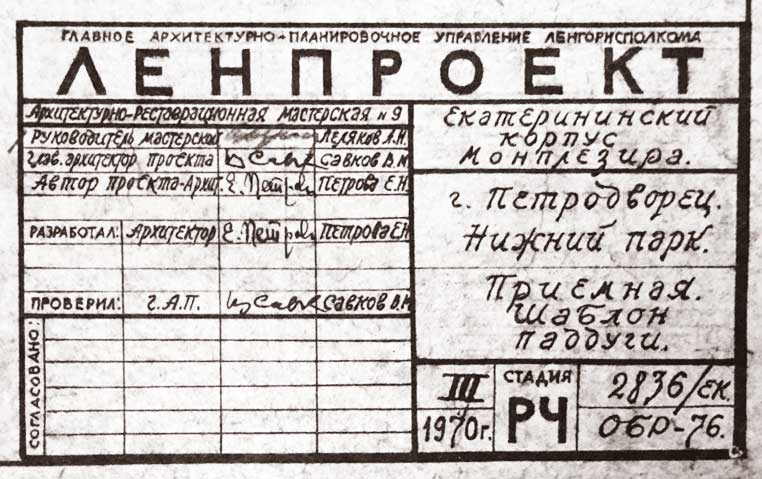 ГЛАВНОЕ АРХИТЕКТУРНО-ПЛАНИРОВОЧНОЕ УПРАВЛЕНИЕ ЛЕНГОРИСПОЛКОМА
ЛЕНПРОЕКТ
Архитектурно-Реставрационная мастерская № 9
Руководитель мастерской Леляков А.Н.
Глав. архитектор проекта Савков В.М.
Автор проекта-Архит. Е. Петрова Петрова Е.Н.
РАЗРАБОТАЛ: Архитектор Е. Петрова Петрова Е.Н.
ПРОВЕРИЛ: Г.А.П. Савков В.М.
СОГЛАСОВАНО:
Екатерининский
корпус
Монплезира.
г. Петродворец.
Нижний парк.
Приемная.
Шаблон
паддуги.
III
1970г.
СТАДИЯ
РЧ
2836/ЕК.
ОБР-76.